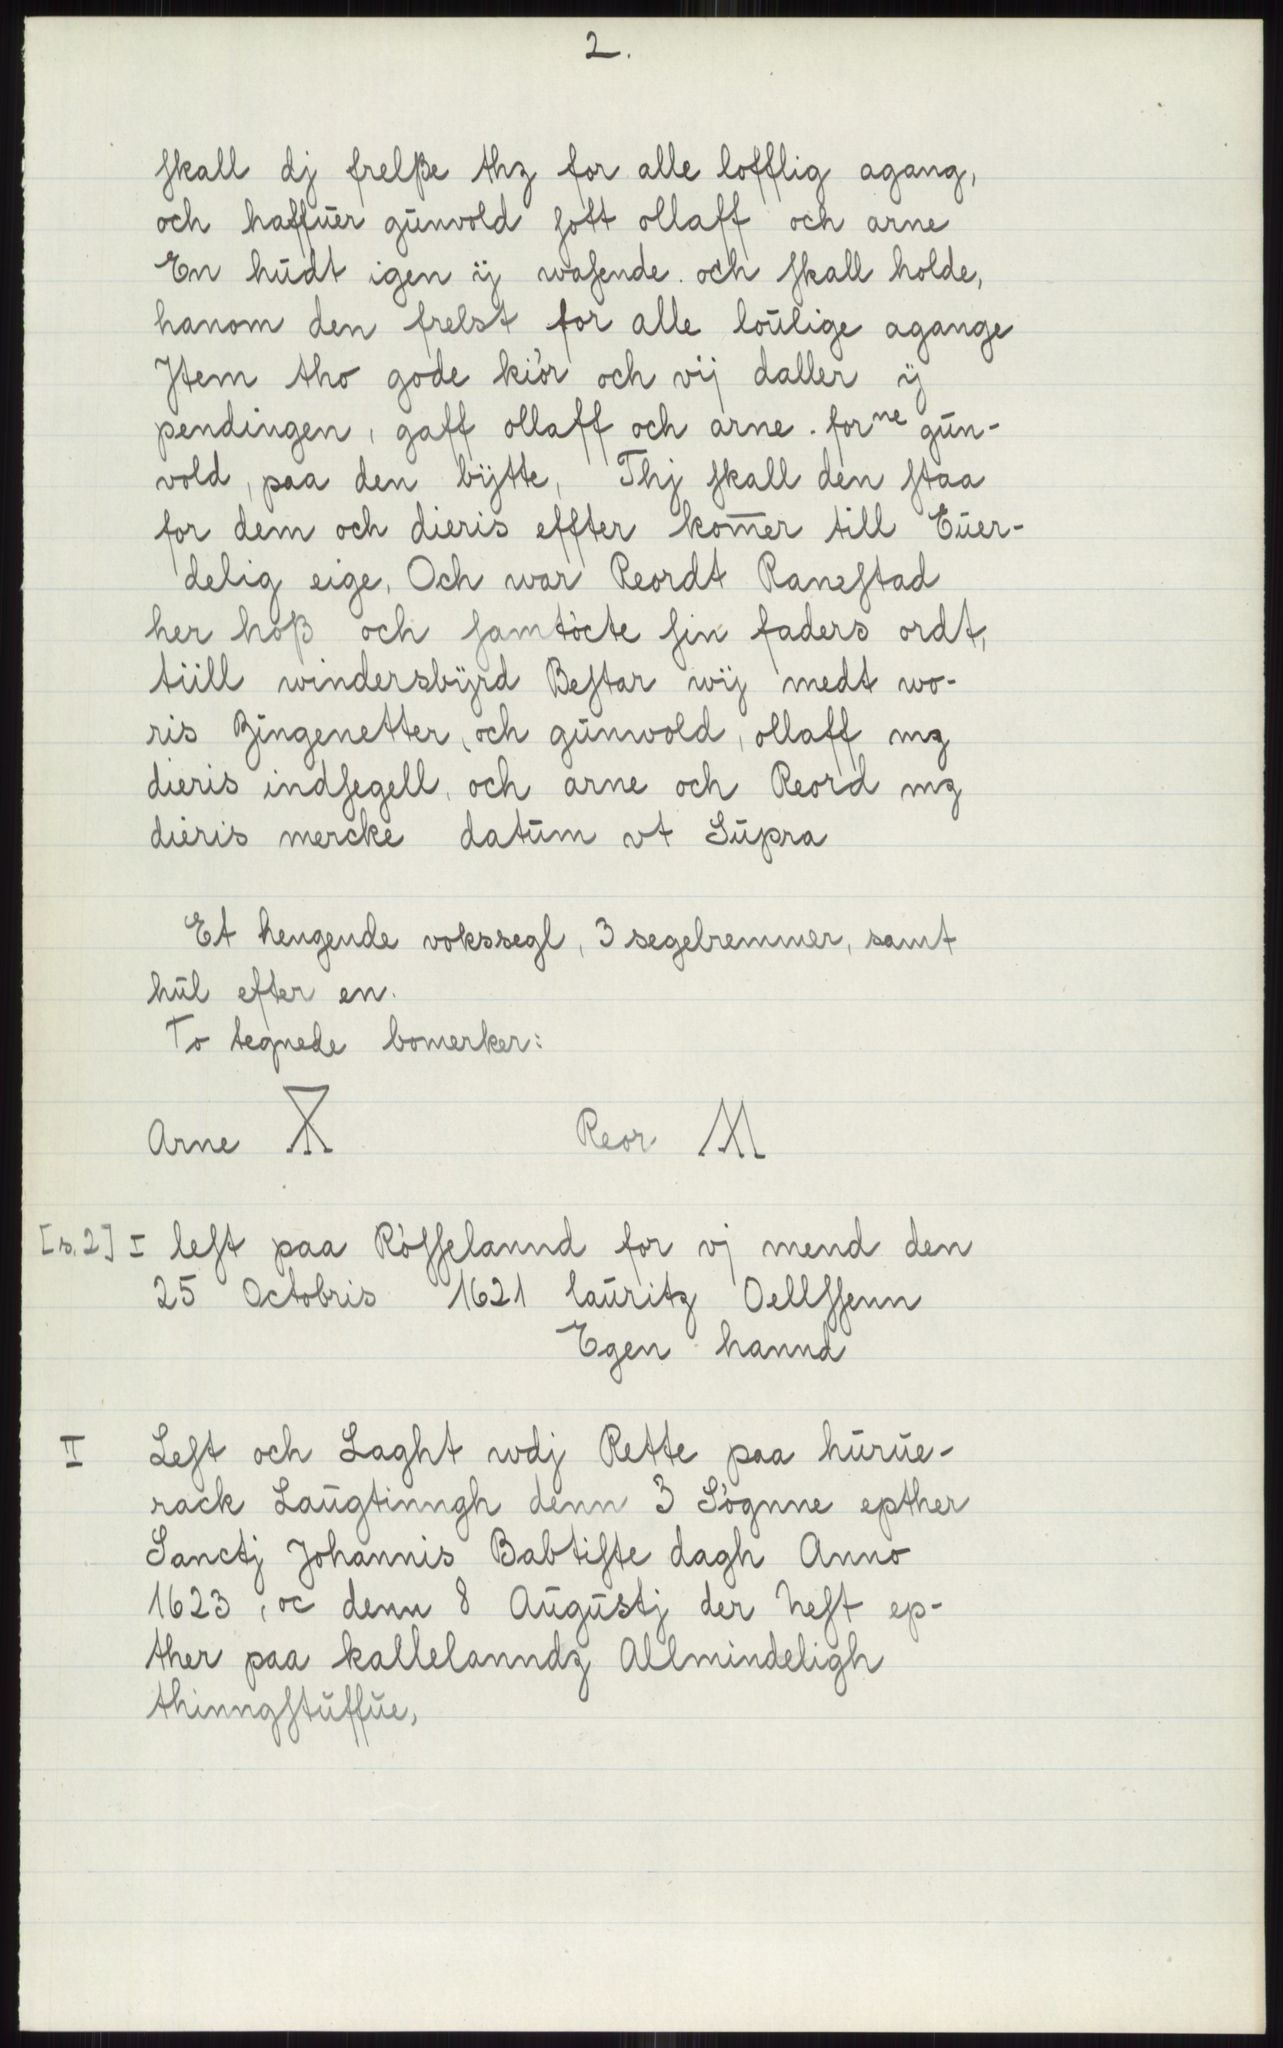 2.
skall dj frelße thz for alle lofflig agang,
och haffuer gunvold fott ollaff och arne
En hudt igen ÿ wasende. och skall holde,
hanom den frelst for alle loulige agange
Jtem tho gode kiör och vij daller ÿ
pendingen, gaff ollaff och arne. forne gun-
vold, paa den bÿtte, Thj skall den staa
for dem och dieris effter kom̅er till Euer-
delig eige, Och war Reordt Ranestad
her höß och samtöcte sin faders ordt,
tiill windersbÿrd Bestar wÿ medt wo-
ris Zingenetter, och gunwold, ollaff mz
dieris indsegell, och arne och Reord mz
dieris mercke datum vt Supra
Et hengende vokssegl, 3 segelremmer, samt
hul efter en.
To tegnede bomerker:
Arne Reor
[s. 2] I lest paa Rösselannd for vj mend den
25 Octobris 1621 lauritz Oellssenn
Egen hannd
II Lest och Laght wdj Rette paa hurue-
rack Laugtinngh denn 3 Sögnne epther
Sanctj Johannis Babtiste dagh Anno
1623, oc denn 8 Augustj der hest ep-
ther paa kallelanndz Allmindeligh
thinngstuffue,